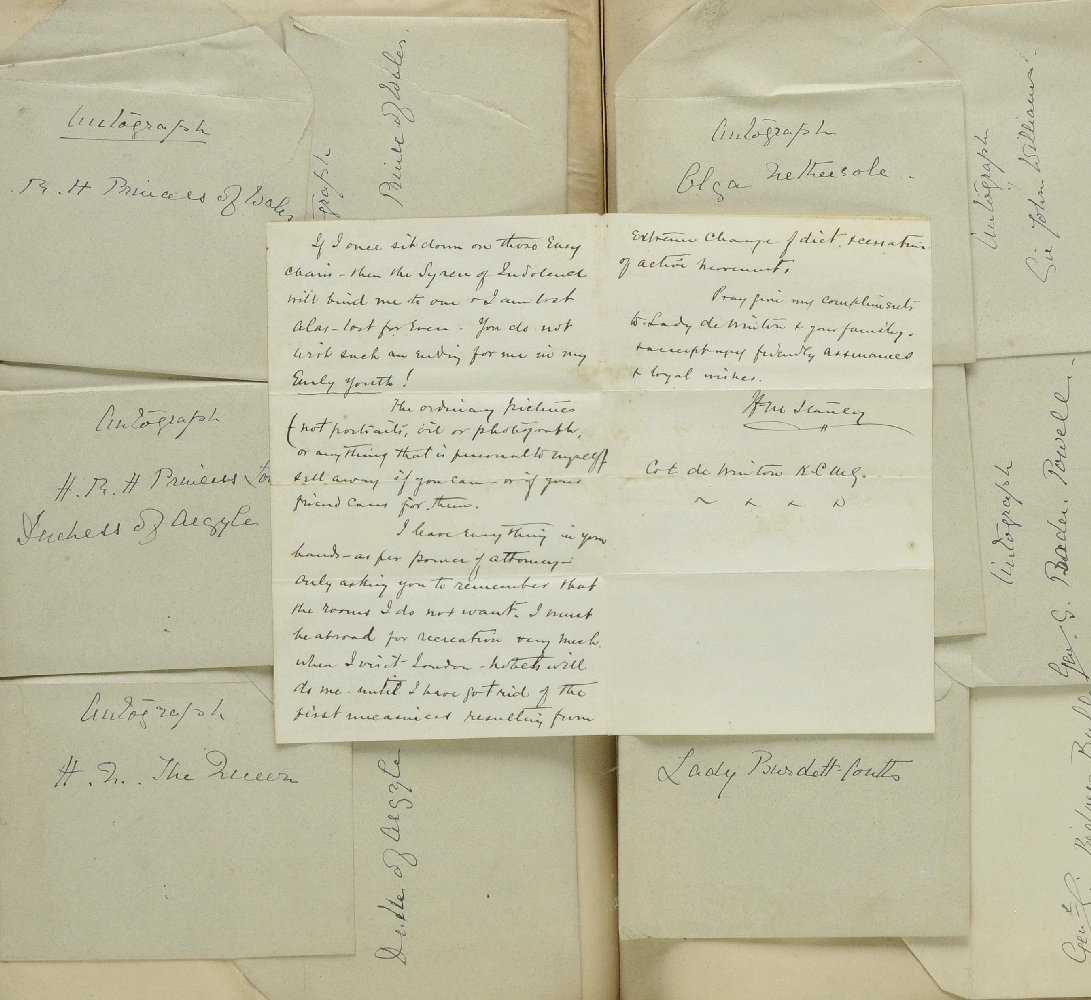 Autograph
H.R.H Princess of Wales
Autograph
Prince of Wales.
Autograph
Olga Nethersole.
Autograph
Sir John Williams.
If I once sit down on those Easy
chairs - then the Syren of Indolence
will bind me to one & I am lost
alas - lost for Ever. You do not
wish such an Ending for me in my
Early youth!
The ordinary pictures
(not portraits, oil or photograph,
or anything that is personal to myself)
sell away if you can - or if your
friend cares for them.
I leave Everything in your
hands - as per power of attorney
only asking you to remember that
the rooms I do not want. I must
be abroad for recreation very much.
when I visit London - hotels will
do me until I have got rid of the
first uneasiness resulting from
Extreme Change of diet, & cessation
of active movements.
Pray give my compliments
to Lady de Winton & your family.
& accept my friendly assurances
& loyal wishes.
H M Stanley
Col de Winton K.C.M.G.
Autograph
H.R.H Princess Lou
Duchess of Argyle
Autograph
Gen. G. Baden Powell.
Autograph
H.M. The Queen
Duke of Argyle
Lady Burdett-Coutts
Genl Sir Redvers Buller